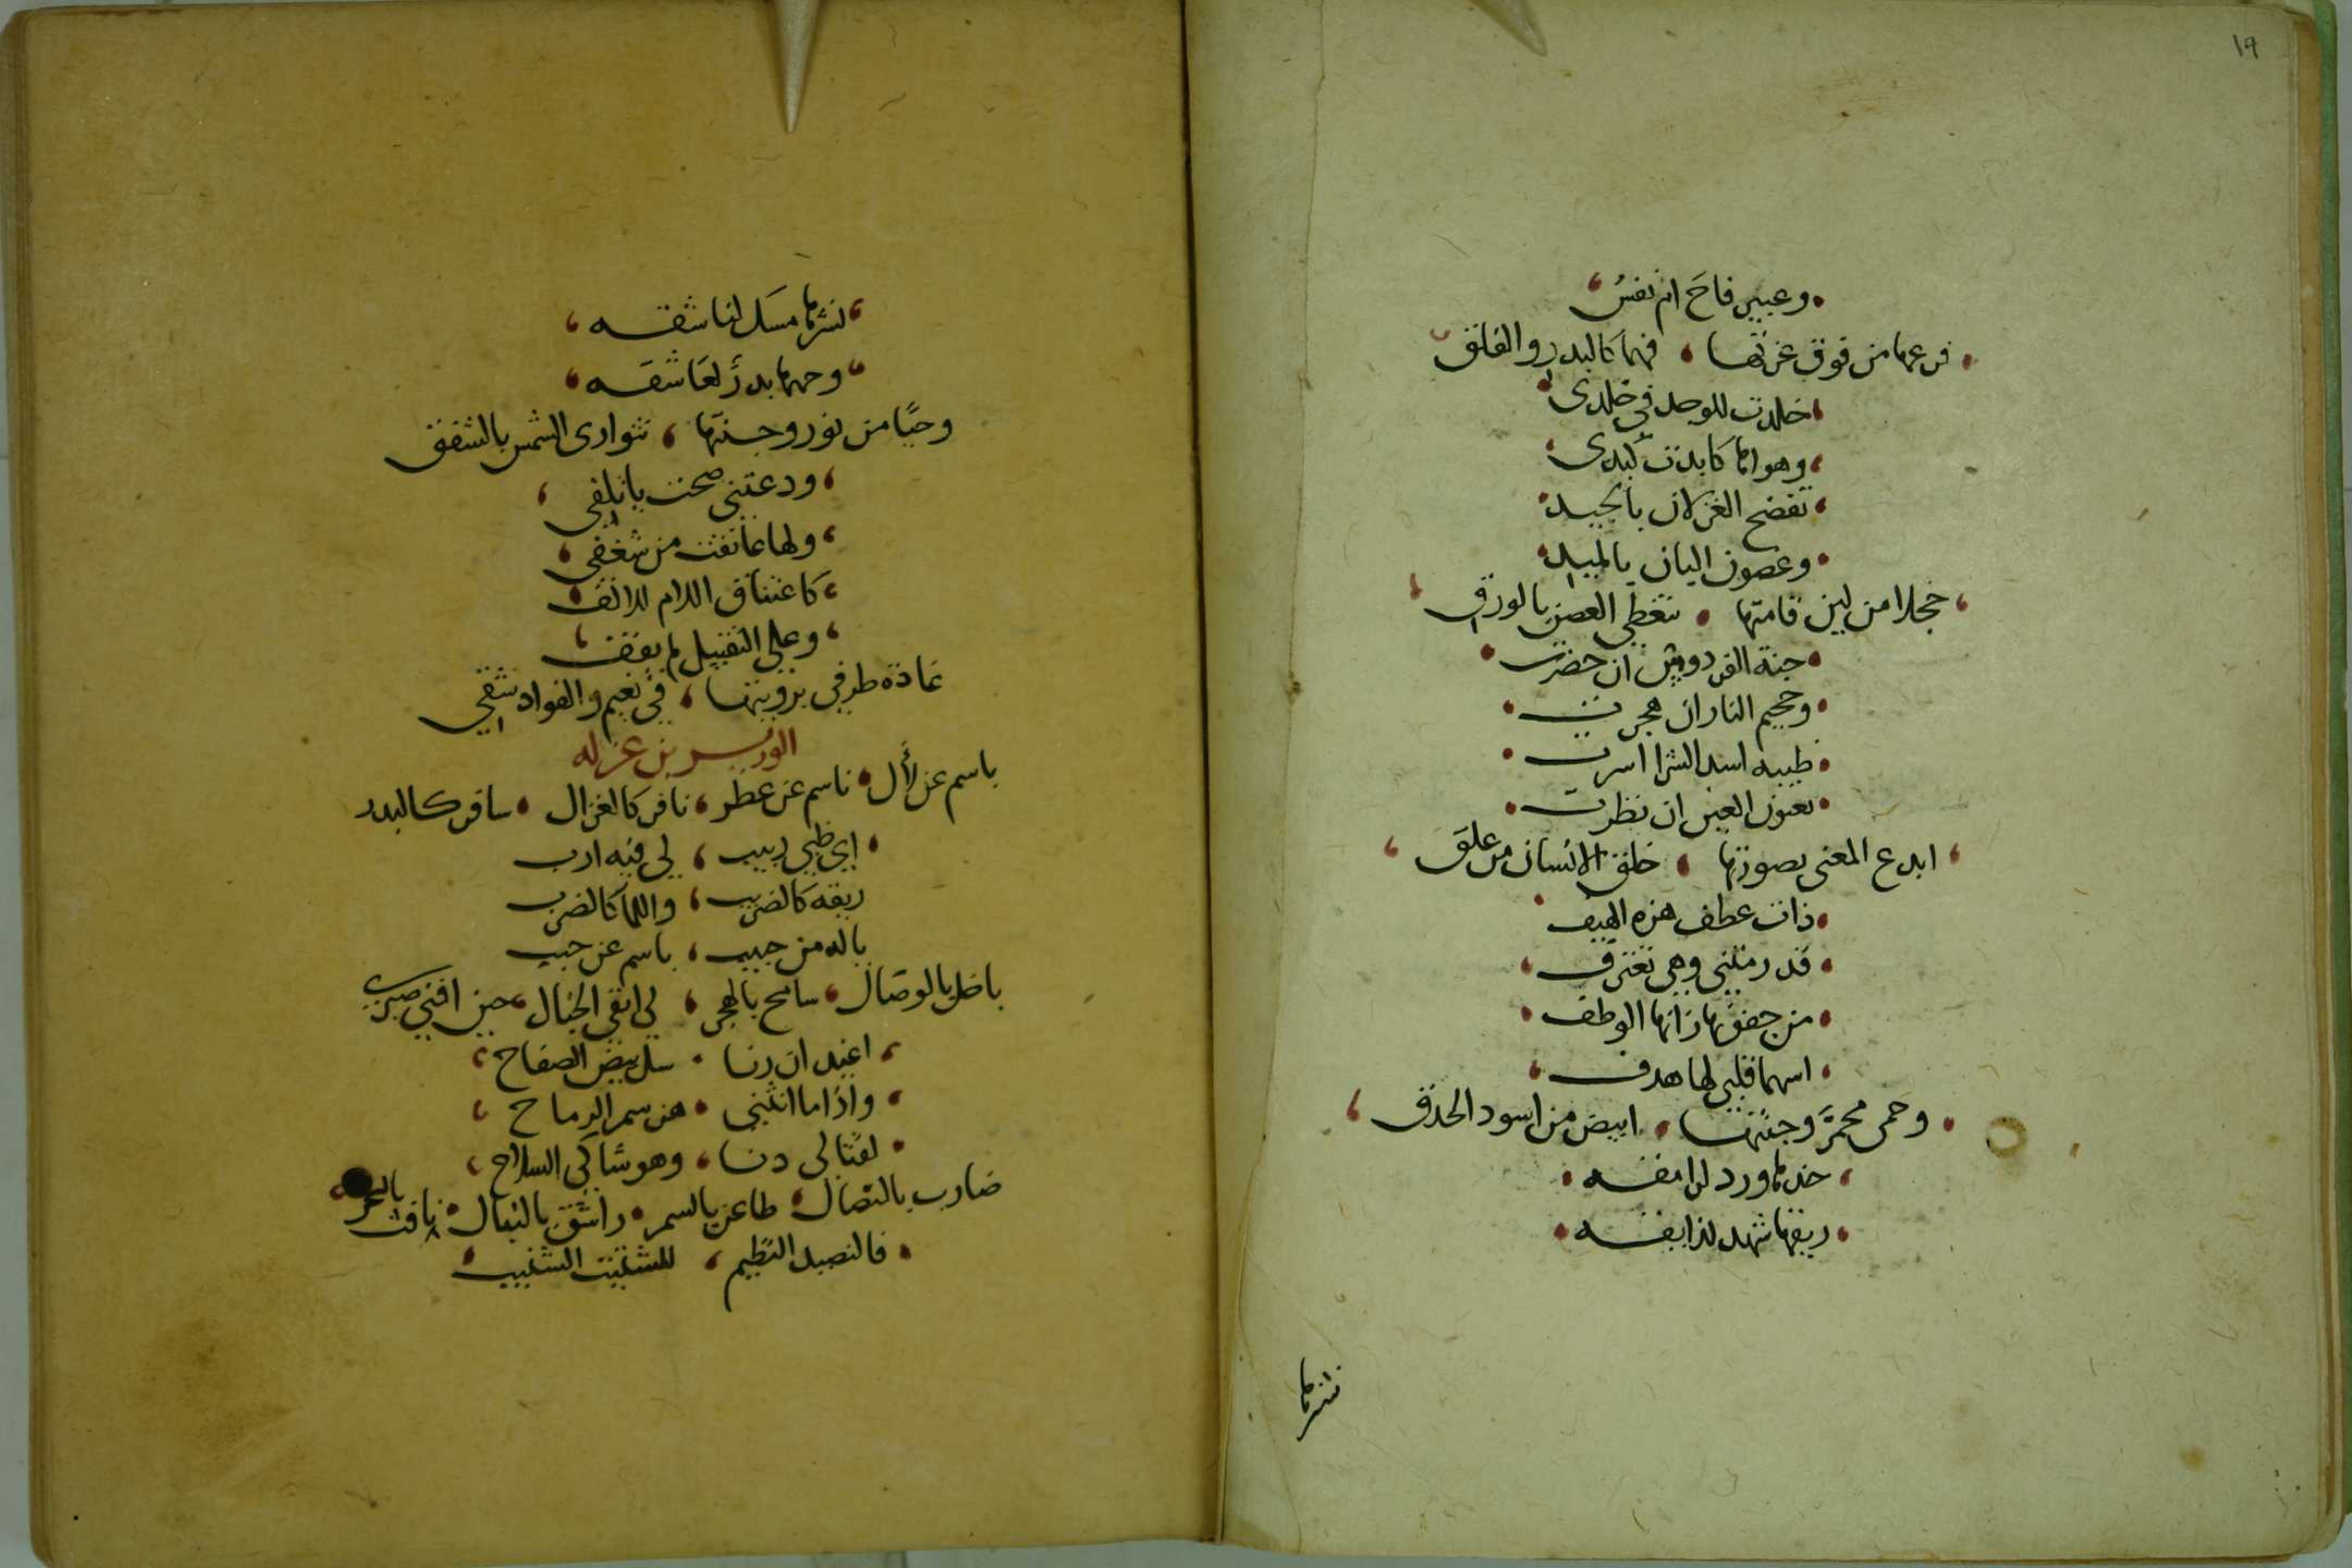 ١٦
وعبير فاح ام نفس
فرعها من فوق غرتها ، فهما كالبدر والغلق
خلدت للوجد في خلدى
وهواها كابدت كبدى
تفضح الغزلان بالجيد
وغصون البان بالميد
خجلا من لين قامتها ، تتغطى الغصن بالورق
جنة الفردوس ان حضرت
وجحيم النار ان هجرت
ظبيه اسد الشرا اسرت
بعيون العين ان نظرت
ابدع المعنى بصورتها ، خلق الانسان من علق
ذات عطف هزه الهيف
قد رمتني وهي تعترف
من جفونها زانها الوطف
اسهما قلبي لها هدف
وحمى محمر وجنتها ، ابيض من اسود الحدق
خدها ورد لرامقه
ريقها شهد لذايقه
نشرها
نشرها مسك لناشقه
وجهها بدر لعاشقه
وحيا من نور وجنتها ، تتوارى الشمس بالشفق
ودعتني صحت ياتلفي
ولها عانقت من شغفي
كاعتناق اللام للالف
وعلى التقبيل لم يقف
غادة طرفي برويتها ، في نعيم والفواد شقي
باسم عن لأل ، ناسم عن عطر ، نافر كالغزال ، سافر كالبدر
اي ظبي ربيب ، لي فيه ارب
ريقه كالضريب ، واللما كالضرب
ياله من حبيب ، باسم عن حبب
باخل بالوصال ، سامح بالهجر ، لي ابقى الخيال ، حين افنى صبرى
اغيد ان رنا ، سل بيض الصفاح
واذا ما انثنى ، هز سمر الرماح
لقتالى دنا ، وهو شاكي السلاح
ضارب بالنصال ، طاعن بالسمر ، راشق بالنبال ، نافث بالسحر
النظيم ، الشنيب